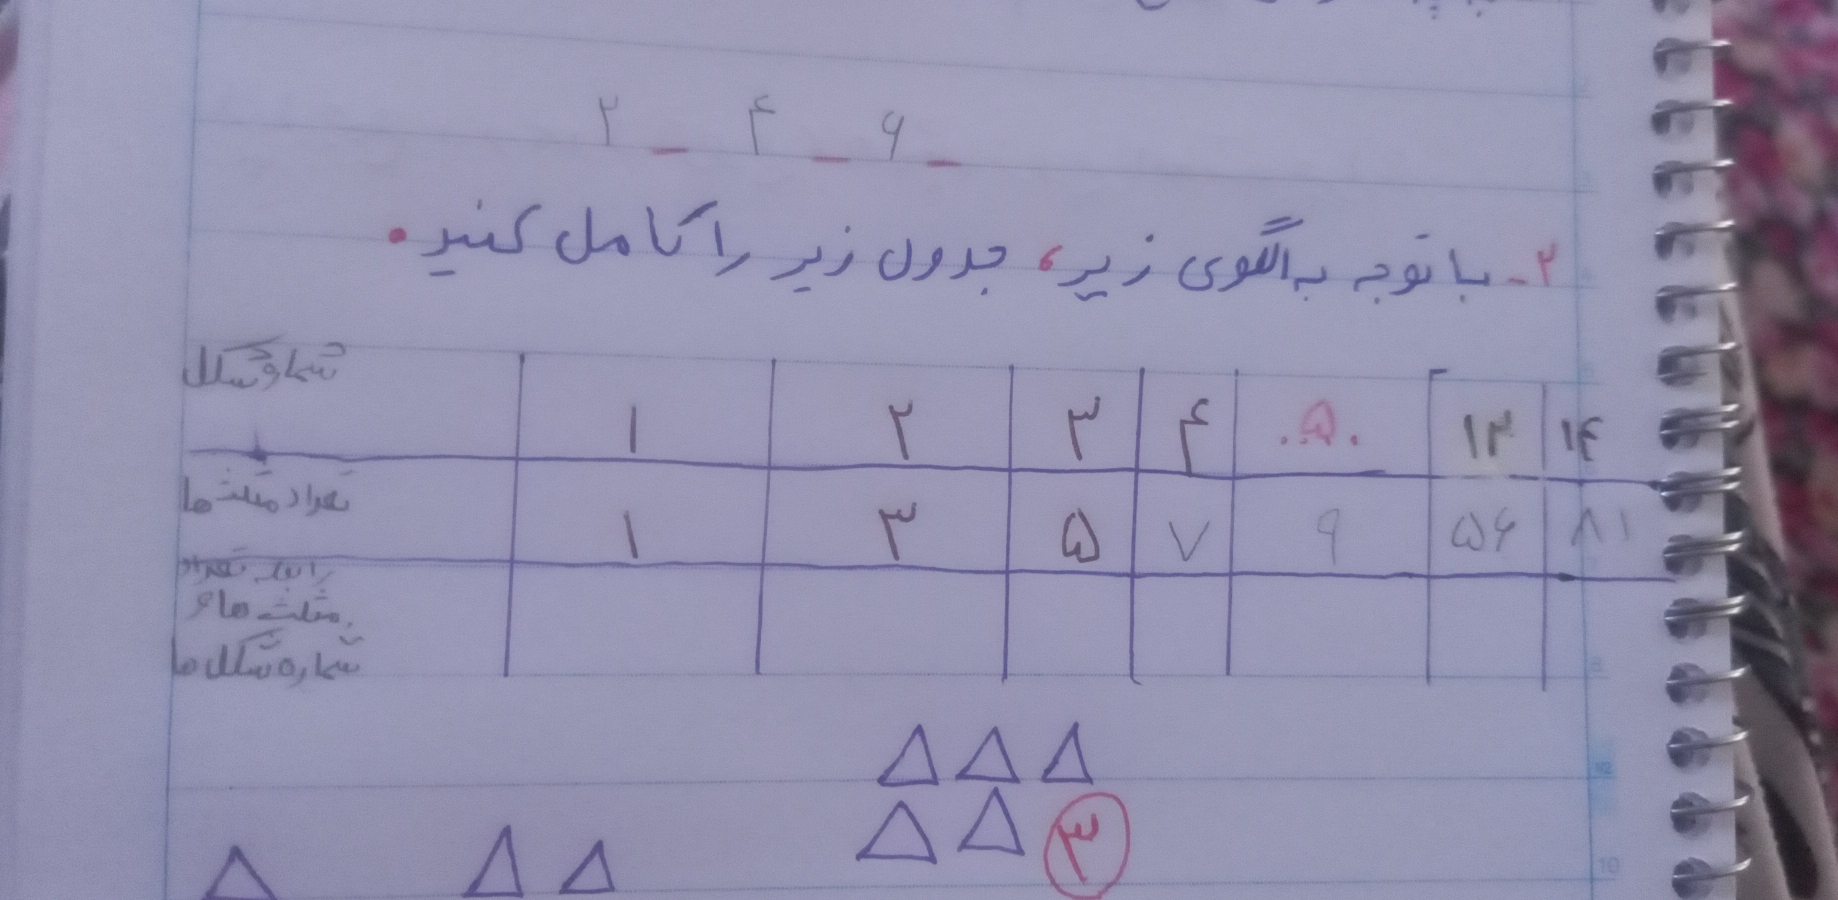 ۲ - ۴ - ۶ -
۲- با توجه به الگوی زیر، جدول زیر را کامل کنید.
شماره شکل ۱ ۲ ۳ ۴ ۵ ۱۳ ۱۴
تعداد مثلث ها ۱ ۳ ۵ ۷ ۹ ۵۶ ۸۱
رابطه تعداد
مثلث ها و
شماره شکل ها
۳